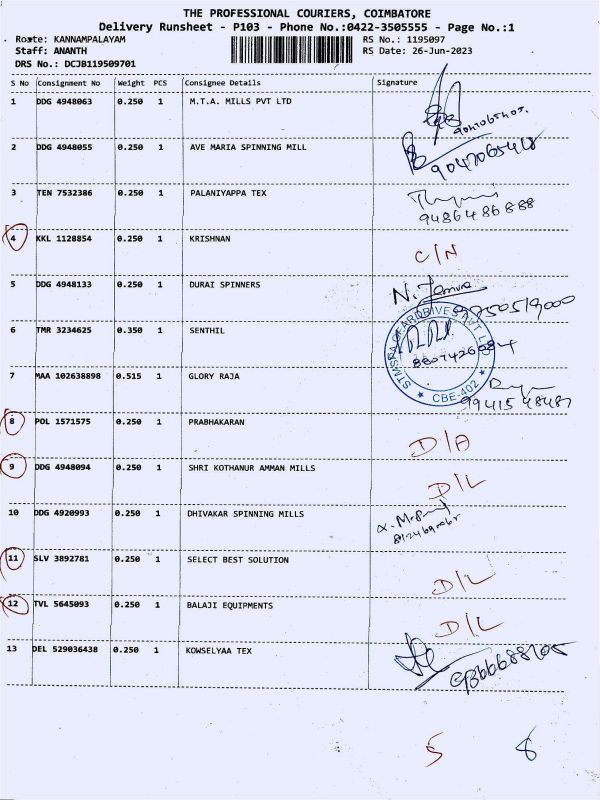 THE PROFESSIONAL COURIERS, COIMBATORE
Delivery Runsheet - P103 - Phone No.:0422-3505555 - Page No.:1
Route: KANNAMPALAYAM RS No.: 1195097
Staff: ANANTH RS Date: 26-Jun-2023
DRS No.: DCJB119509701
S No Consignment No Weight PCS Consignee Details Signature
1 DDG 4948063 0.250 1 M.T.A. MILLS PVT LTD
2 DDG 4948055 0.250 1 AVE MARIA SPINNING MILL
3 TEN 7532386 0.250 1 PALANIYAPPA TEX
9486486888
4 KKL 1128854 0.250 1 KRISHNAN C/N
5 DDG 4948133 0.250 1 DURAI SPINNERS
6 TMR 3234625 0.350 1 SENTHIL
8807426084
CBE-402
7 MAA 102638898 0.515 1 GLORY RAJA
9941548487
8 POL 1571575 0.250 1 PRABHAKARAN D/A
9 DDG 4948094 0.250 1 SHRI KOTHANUR AMMAN MILLS D/L
10 DDG 4920993 0.250 1 DHIVAKAR SPINNING MILLS
11 SLV 3892781 0.250 1 SELECT BEST SOLUTION D/L
12 TVL 5645093 0.250 1 BALAJI EQUIPMENTS D/L
13 DEL 529036438 0.250 1 KOWSELYAA TEX
5 8